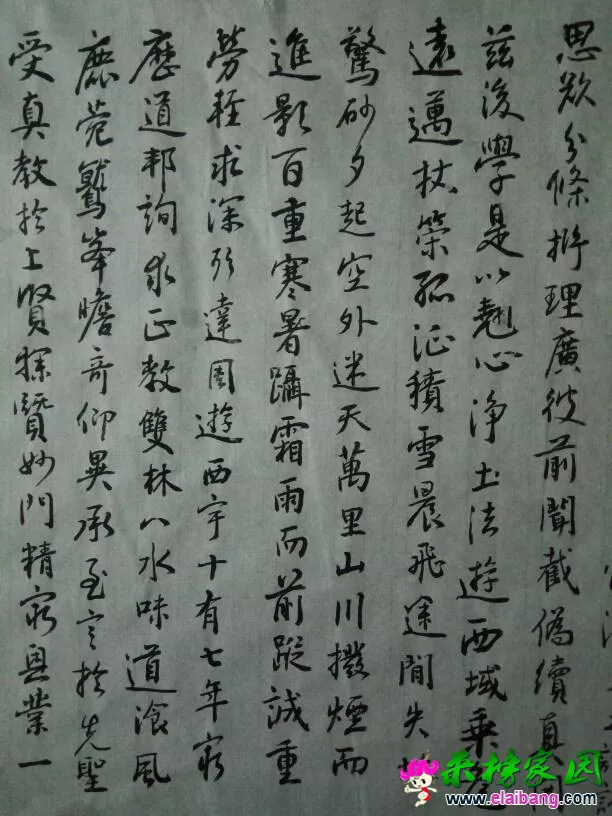 思欲分條析理廣彼前聞截僞續真開
兹後學是以翹心淨土法遊西域乘危
遠邁杖策孤征積雪晨飛途間失地
驚砂夕起空外迷天萬里山川撥煙而
進影百重寒暑躡霜雨而前蹤誠重
勞輕求深願達周遊西宇十有七年窮
歷道邦詢求正教雙林八水味道飡風
鹿菀鷲峯瞻奇仰異承至言於先聖
受真教於上賢探賾妙門精窮奥業一
来榜家园
www.elaibang.com